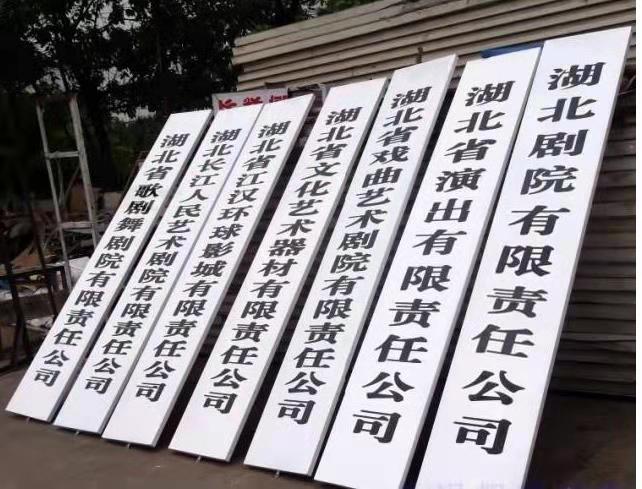 湖北省歌剧舞剧院有限责任公司
湖北长江人民艺术剧院有限责任公司
湖北省江汉环球影城有限责任公司
湖北省文化艺术器材有限责任公司
湖北省戏曲艺术剧院有限责任公司
湖北省演出有限责任公司
湖北剧院有限责任公司